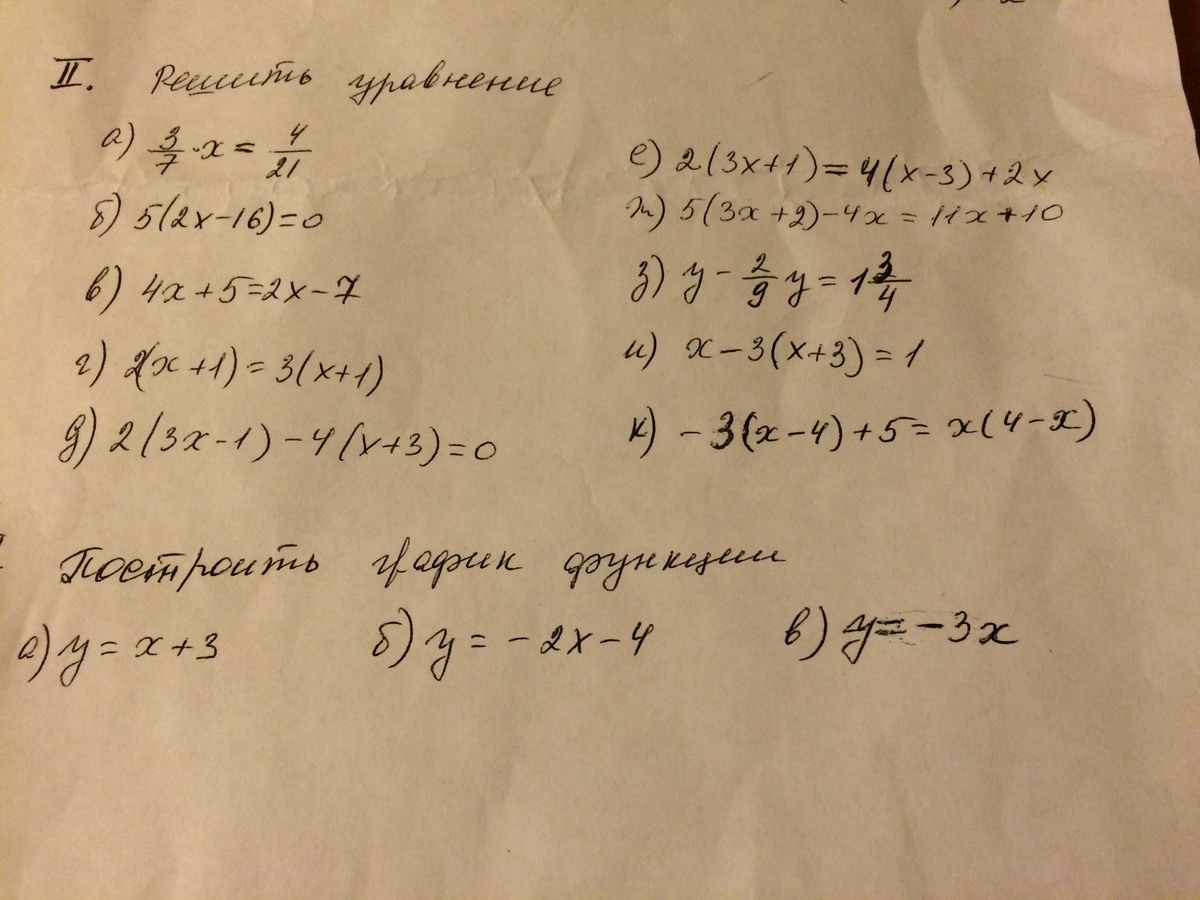 II. Решить уравнение
а) 3/7 · x = 4/21
б) 5(2x-16)=0
в) 4x+5=2x-7
г) 2(x+1)=3(x+1)
д) 2(3x-1)-4(x+3)=0
е) 2(3x+1)=4(x-3)+2x
ж) 5(3x+2)-4x=11x+10
з) y - 2/9 y = 1 3/4
и) x-3(x+3)=1
к) -3(x-4)+5=x(4-x)
Построить график функции
а) y=x+3 б) y=-2x-4 в) y=-3x